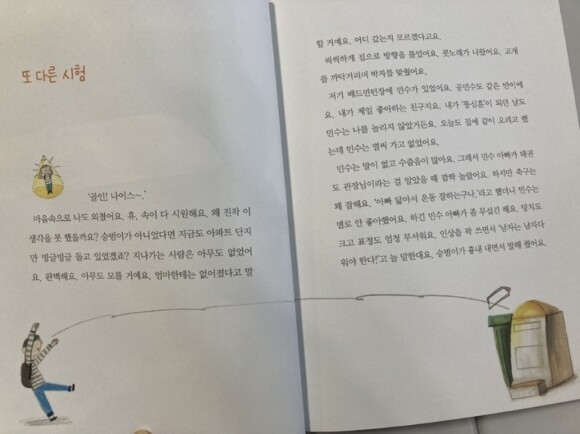 또 다른 시험
'골인! 나이스~.'
마음속으로 나도 외쳤어요. 휴, 속이 다 시원해요. 왜 진작 이
생각을 못 했을까요? 승범이가 아니었다면 지금도 아파트 단지
만 빙글빙글 돌고 있었겠죠? 지나가는 사람은 아무도 없었어
요. 완벽해요. 아무도 모를 거예요. 엄마한테는 없어졌다고 말
할 거예요. 어디 갔는지 모르겠다고요.
씩씩하게 집으로 방향을 틀었어요. 콧노래가 나왔어요. 고개
를 까닥거리며 박자를 맞췄어요.
저기 배드민턴장에 민수가 있었어요. 공민수도 같은 반이에
요. 내가 제일 좋아하는 친구지요. 내가 '똥싶훈'이 되던 날도
민수는 나를 놀리지 않았거든요. 오늘도 집에 같이 오려고 했
는데 민수는 벌써 가고 없었어요.
민수는 말이 없고 수줍음이 많아요. 그래서 민수 아빠가 태권
도 관장님이라는 걸 알았을 때 깜짝 놀랐어요. 하지만 축구는
꽤 잘해요. '아빠 닮아서 운동 잘하는구나.'라고 했더니 민수는
별로 안 좋아했어요. 하긴 민수 아빠가 좀 무섭긴 해요. 덩치도
크고 표정도 엄청 무서워요. 인상을 팍 쓰면서 '남자는 남자다
워야 한다!'고 늘 말한대요. 승범이가 흉내 내면서 말해 줬어요.